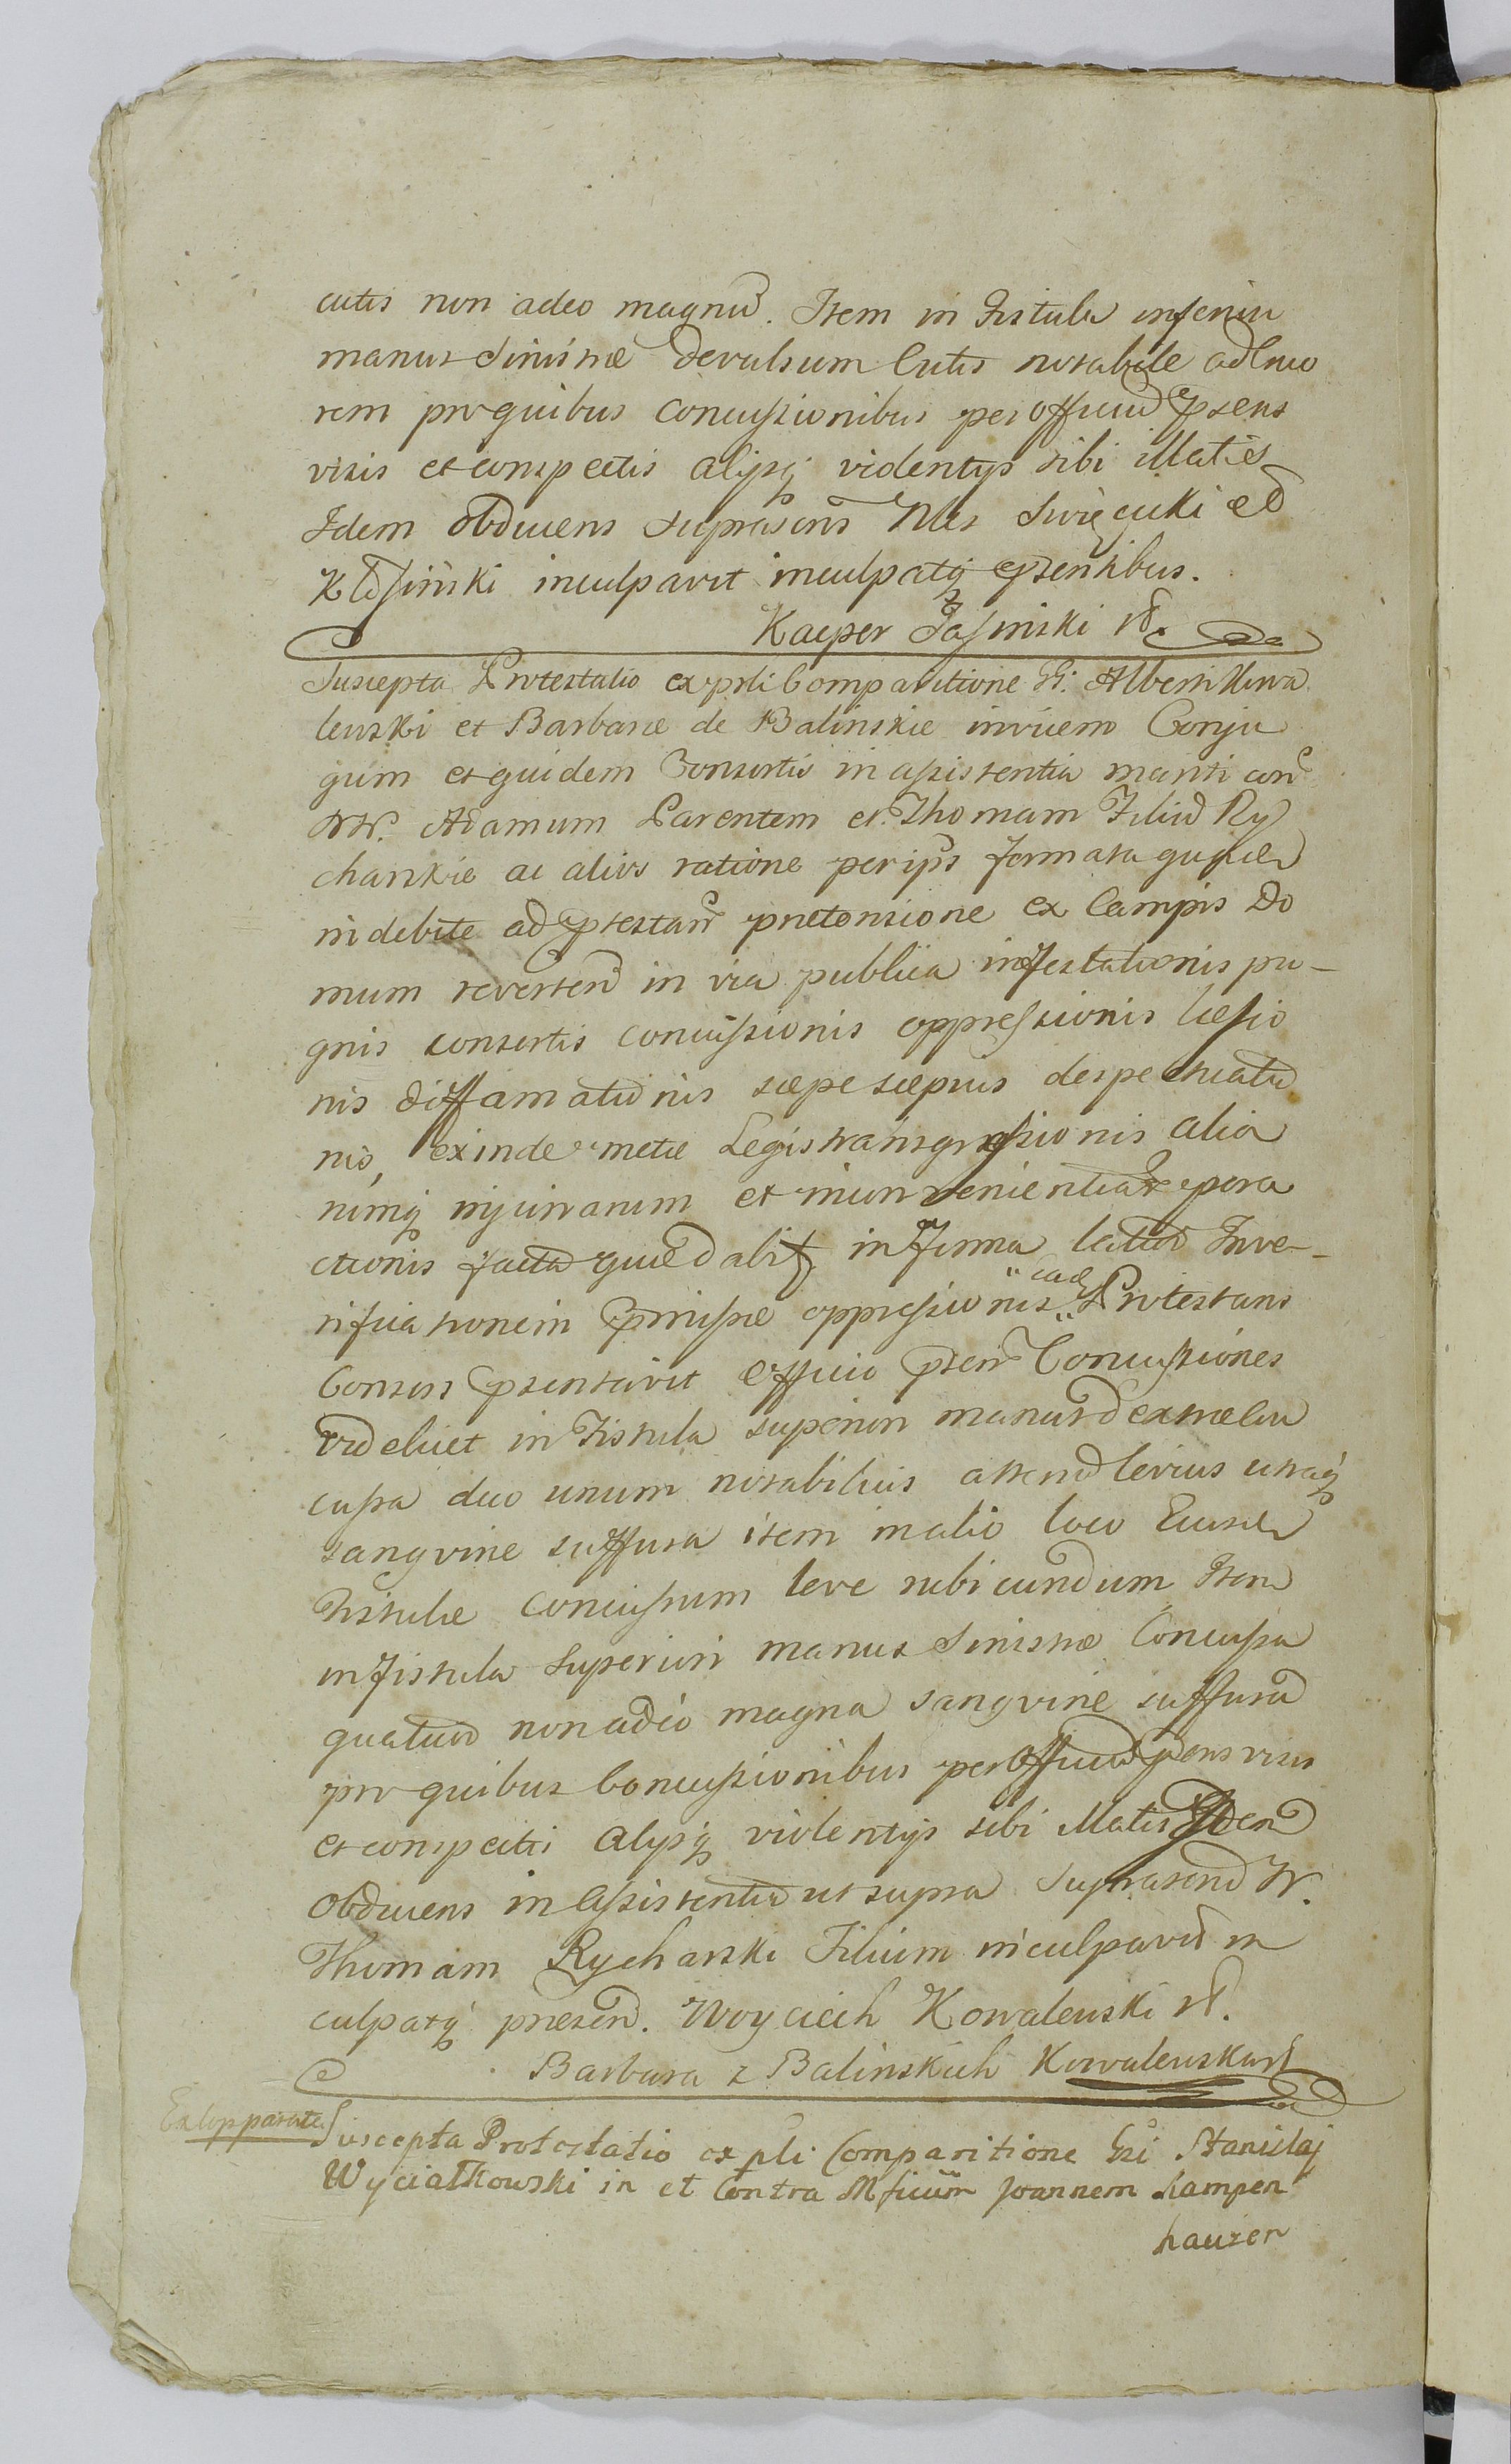 cutis non adeo magnu. Item in Fistula inferiu
manus Sinistræ devulsum Cutis notabile ad Cruo
rem pro quibus concussionibus per officiu psens
visis et conspectis alijsq violentys sibi illatis
Idem obducens suprascrus Nles Swięcicki et
Kłosinski inculpavit inculpatq psentibus.
Kacper Jasinski
Suscepta Protestatio ex psli Comparitione G. Alberti Kowa
lewski et Barbaræ de Balinskie invicem Conju
gum et quidem Consortis in assistentia mariti con
W. Adamum Parentem et Thomam Filiu Ry
charskie ac alios ratione per ipsos formata quæ
indebite ad prestan prætensione ex Campis Do
mum reverten in via publica infestationis pu-
gnis consortis concussionis oppressionis læsio
nis diffamationis sæpe sæpius despectuatio
nis, exinde metæ Legis transgressionis alia
rumq injuriarum et inconvenientiar pera
ctionis facta quæd abit in Firma latius Inve-
rificationem pmissæ oppressionis " eade " Protestans
Consors psentavit officio psen Concussiones
videlicet in Fistula superiori manus dextræ Con
cussa duo unum notabilius alterud levius utraq
sangvine suffusa item in alio loco Ejusd
Fistulæ concussum leve rubicundum Item
in Fistula Superiori manus Sinistræ Concussa
quatuor non adeo magna sangvine suffusa
pro quibus Concussionibus per Officiu psens visis
et conspectis alysq violentys sibi illatis Idem
obducens in assistentia ut supra Suprascru W.
Thomam Rycharski Filium inculpavit in
culpatq præsen. Woyciech Kowalewski
Barbara z Balinskich Kowalewska
Suscepta Protestatio ex psli Comparitione Gsi Stanislaj
Wyciałkowski in et Contra Mficum Joannem hampen
hauzen